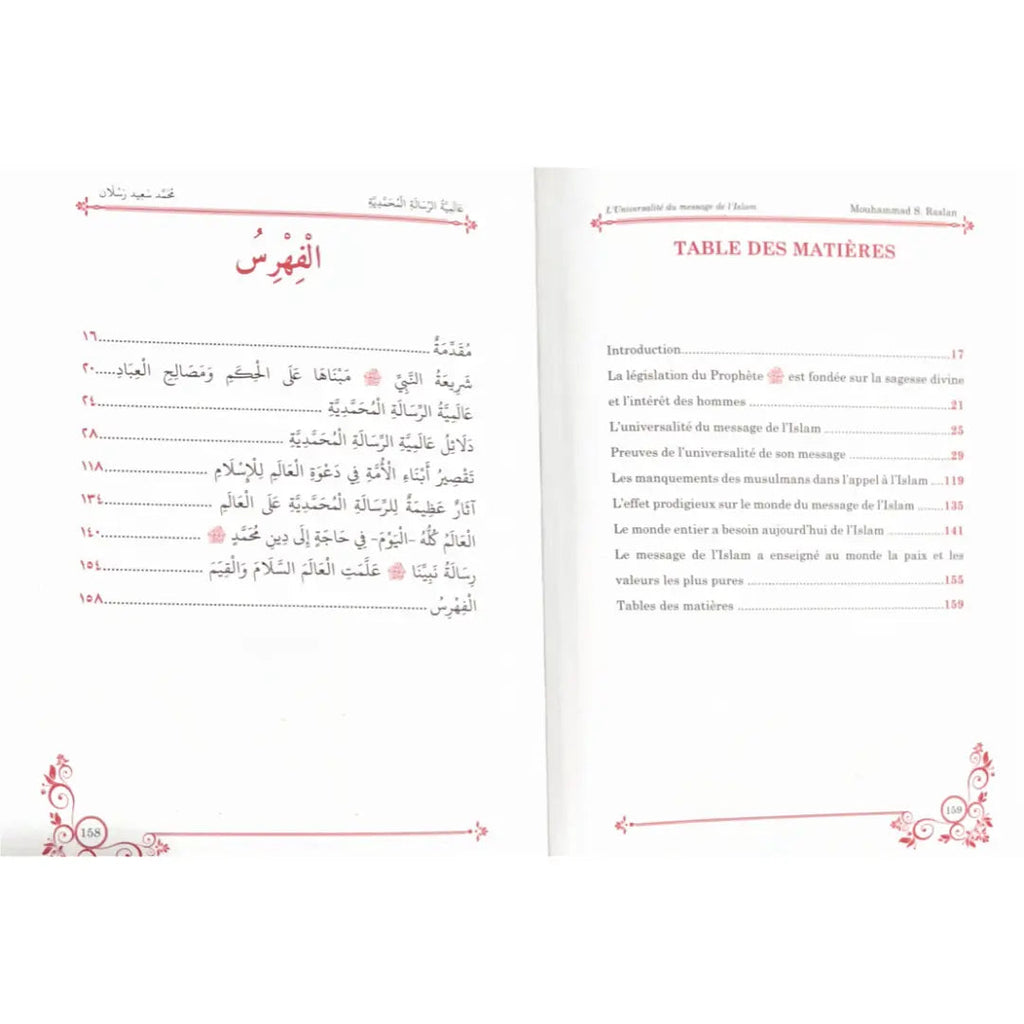 محمد سعيد رسلان
عَالَمِيَّةُ الرِّسَالَةِ الْمُحَمَّدِيَّةِ
الْفِهْرِسُ
مُقَدِّمَةٌ ١٦
شَرِيعَةُ النَّبِيِّ ﷺ مَبْنَاهَا عَلَى الْحِكَمِ وَمَصَالِحِ الْعِبَادِ ٢٠
عَالَمِيَّةُ الرِّسَالَةِ الْمُحَمَّدِيَّةِ ٢٤
دَلَائِلُ عَالَمِيَّةِ الرِّسَالَةِ الْمُحَمَّدِيَّةِ ٢٨
تَقْصِيرُ أَبْنَاءِ الْأُمَّةِ فِي دَعْوَةِ الْعَالَمِ لِلْإِسْلَامِ ١١٨
آثَارٌ عَظِيمَةٌ لِلرِّسَالَةِ الْمُحَمَّدِيَّةِ عَلَى الْعَالَمِ ١٣٤
الْعَالَمُ كُلُّهُ -الْيَوْمَ- فِي حَاجَةٍ إِلَى دِينِ مُحَمَّدٍ ﷺ ١٤٠
رِسَالَةُ نَبِيِّنَا ﷺ عَلَّمَتِ الْعَالَمَ السَّلَامَ وَالْقِيَمَ ١٥٤
الْفِهْرِسُ ١٥٨
158
L'Universalité du message de l'Islam
Mouhammad S. Raslan
TABLE DES MATIÈRES
Introduction 17
La législation du Prophète ﷺ est fondée sur la sagesse divine
et l'intérêt des hommes 21
L'universalité du message de l'Islam 25
Preuves de l'universalité de son message 29
Les manquements des musulmans dans l'appel à l'Islam 119
L'effet prodigieux sur le monde du message de l'Islam 135
Le monde entier a besoin aujourd'hui de l'Islam 141
Le message de l'Islam a enseigné au monde la paix et les
valeurs les plus pures 155
Tables des matières 159
159